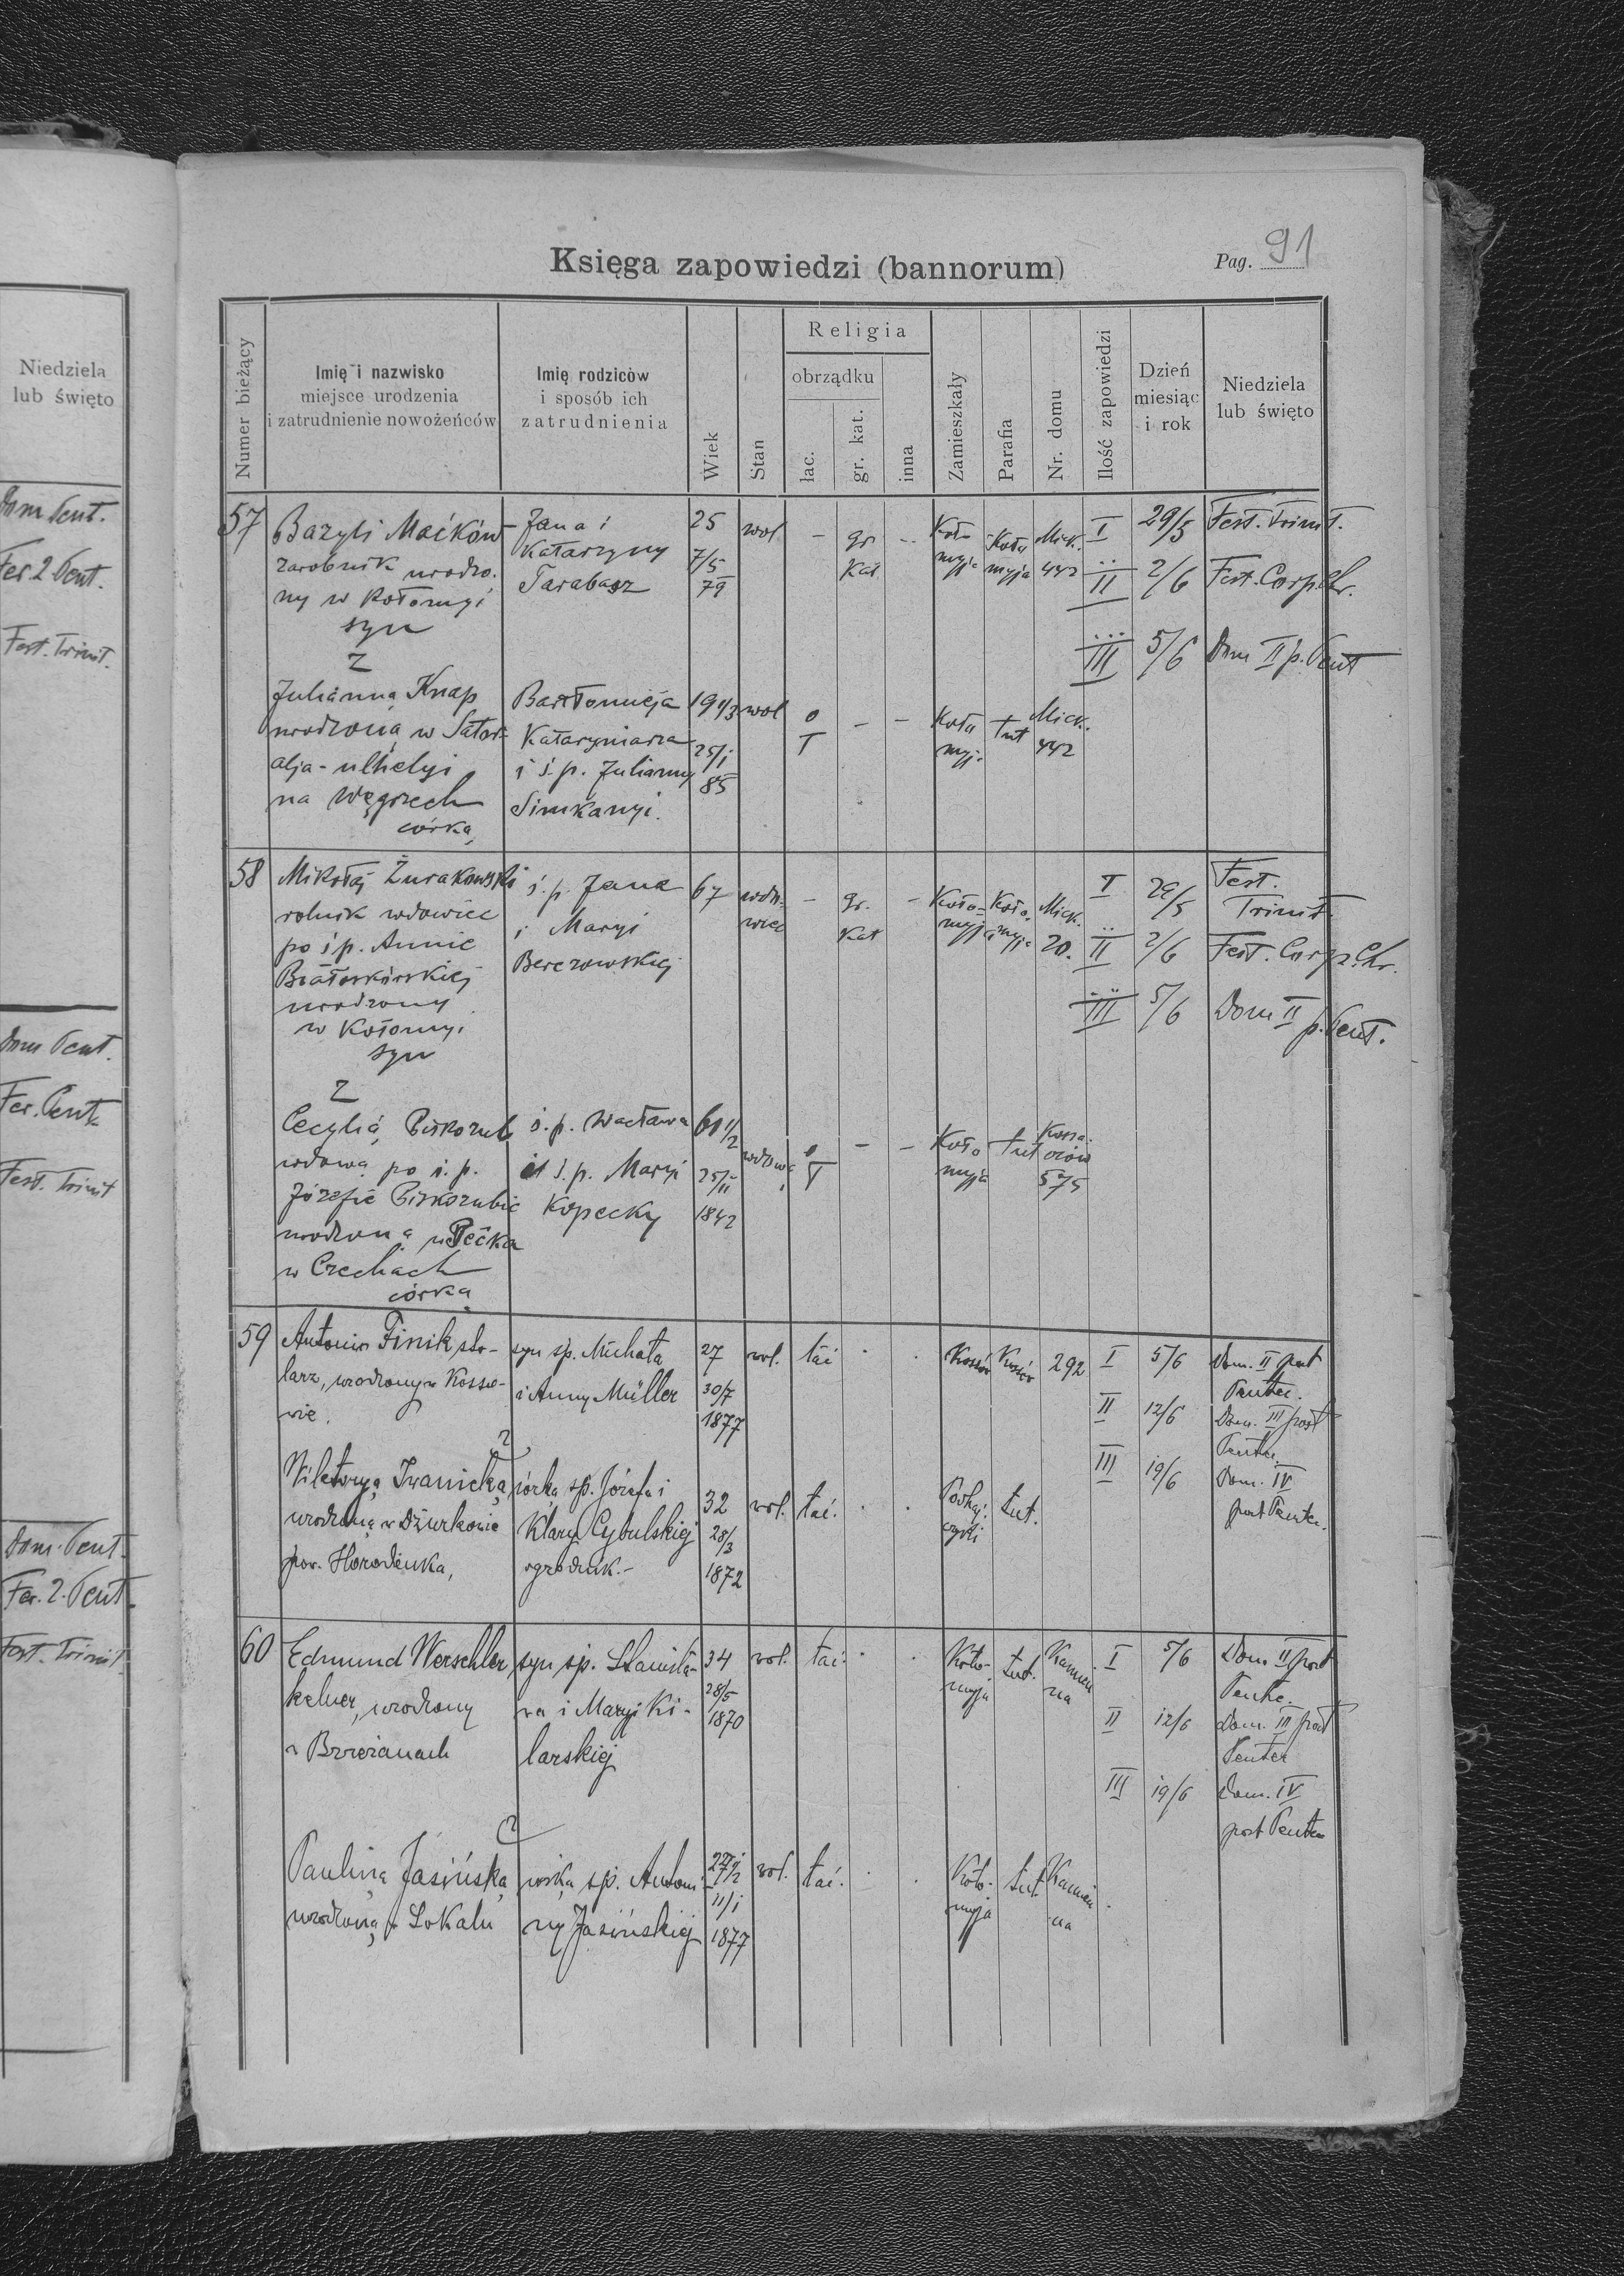 Niedziela
lub święto
Dom Pent.
Fer. 2 Pent.
Fest. Trinit.
Dom Pent.
Fer. Pent.
Fest. Trinit
Dom. Pent.
Fer. 2. Pent.
Fest. Trinit.
Księga zapowiedzi (bannorum)
Pag. 91
Numer bieżący
Imię i nazwisko
miejsce urodzenia
i zatrudnienie nowożeńców
Imię rodziców
i sposób ich
zatrudnienia
Wiek
Stan
Religia
obrządku
łac.
gr. kat.
inna
Zamieszkały
Parafia
Nr. domu
Ilość zapowiedzi
Dzień
miesiąc
i rok
Niedziela
lub święto
57
Bazyli Maćków
zarobnik urodzo-
ny w Kołomyi
syn
z
Jana i
Katarzyny
Tarabasz
25
7/5
79
wol
-
gr
kat
-
Koło
myja
Koło
myja
Mick.
442
I 29/5 Fest. Trinit.
II 2/6 Fest. Corp. Chr.
III 5/6 Dom II p. Pent
Julianną Knap
urodzoną w Sator-
alja-ulhelyi
na Węgrzech
córką
Bartłomieja
Kataryniarza
i ś.p. Julianny
Simkanyi.
19 1/3
25/I
85
wol
-
-
Koło
myj.
tut
Mick.
442
58
Mikołaj Żurakowski
rolnik wdowiec
po śp. Annie
Białoskórskiej
urodzony
w Kołomyi
syn
z
ś.p. Jana
i Maryi
Berezowskiej
67
wdo-
wiec
-
gr.
kat
-
Koło-
myja
Koło.
myja
Mick.
20.
I 29/5 Fest.
Trinit.
II 2/6 Fest. Corp. Chr.
III 5/6 Dom II
p. Pent.
Cecylią Piskozub
wdową po ś.p.
Józefie Piskozubie
urodzoną w Pečka
w Czechach
córką
ś.p. Wacława
i ś.p. Maryi
Kopecky
61 1/2
25/II
1842
wdowa
-
-
Koło
myja
tut
575
59
Antonin Finik sto-
larz, urodzony w Kosso-
wie.
z
syn śp. Michała
i Anny Müller
27
30/7
1877
wol.
łać
Kosów
Kosów
292
I 5/6 Dom. II post
Pentec.
II 12/6 Dom. III post
Pentec.
III 19/6 Dom. IV
post Pentec.
Wiktoryą Iwanicką
urodzoną w Dżurkowie
pow. Horodenka,
córką śp. Józefa i
Klary Cybulskiej
ogrodnik.-
32
28/3
1872
wol.
łać.
tut.
60
Edmund Werschler
kelner, urodzony
w Brzeżanach
z
syn śp. Stanisła-
wa i Maryi Ki-
larskiej
34
28/5
1870
wol.
łać.
Koło-
myja
tut.
Kamien
na
I 5/6 Dom II post
Pentec.
II 12/6 Dom. III post
Pentec
III 19/6 Dom. IV
post Pentec
Pauliną Jasińską
urodzoną w Sokalu
córką śp. Antoni-
ny Jasińskiej
27 1/2
11/I
1877
wol.
łać.
Koło-
myja
tut
Kamien
na